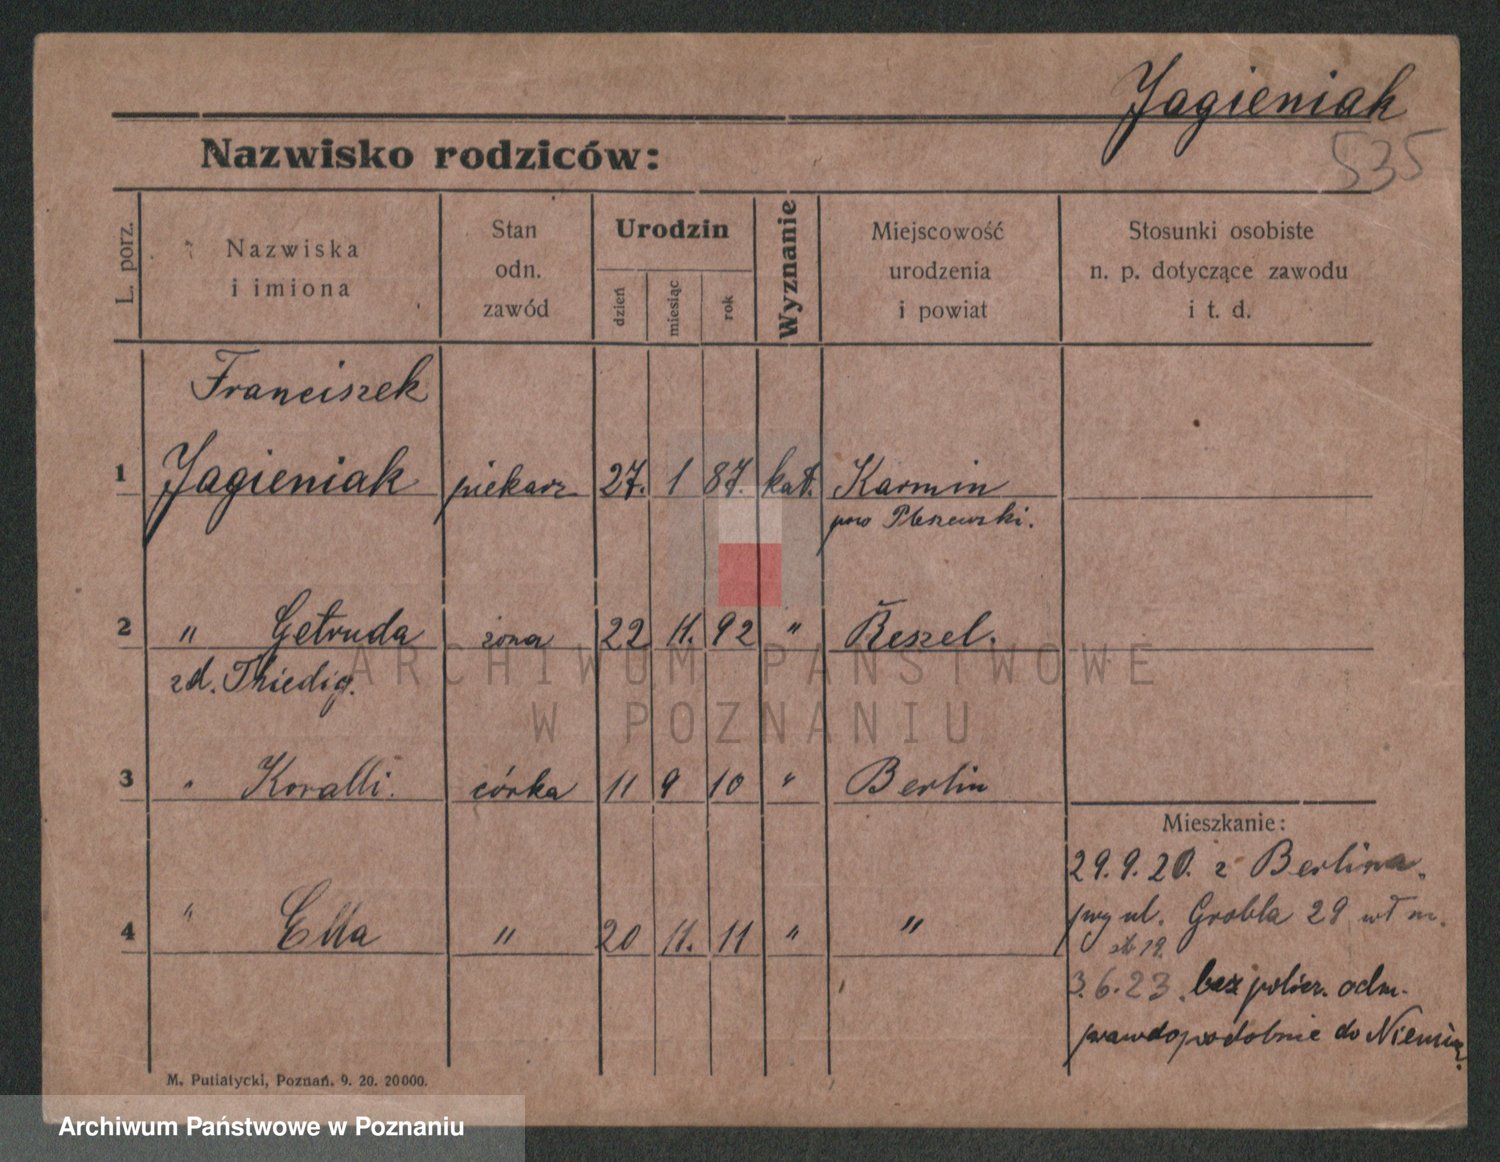 Jagieniak
535
Nazwisko rodziców:
L. porz.
Nazwiska
i imiona
Stan
odn.
zawód
Urodzin
dzień
miesiąc
rok
Wyznanie
Miejscowość
urodzenia
i powiat
Stosunki osobiste
n. p. dotyczące zawodu
i t. d.
Franciszek
1 Jagieniak piekarz 27. 1 87. kat. Karmin
pow Pleszewski.
2 " Getruda żona 22 11. 92 " Reszel.
zd. Thiedig.
3 " Koralli. córka 11 9 10 " Berlin
Mieszkanie:
29.9.20. z Berlina,
4 " Ella " 20 11. 11 " "
przy ul. Grobla 29 wł m.
3.6.23. bez policz. odm.
prawdopodobnie do Niemiec.
M. Putiatycki, Poznań. 9. 20. 20000.
ARCHIWUM PAŃSTWOWE
W POZNANIU
Archiwum Państwowe w Poznaniu